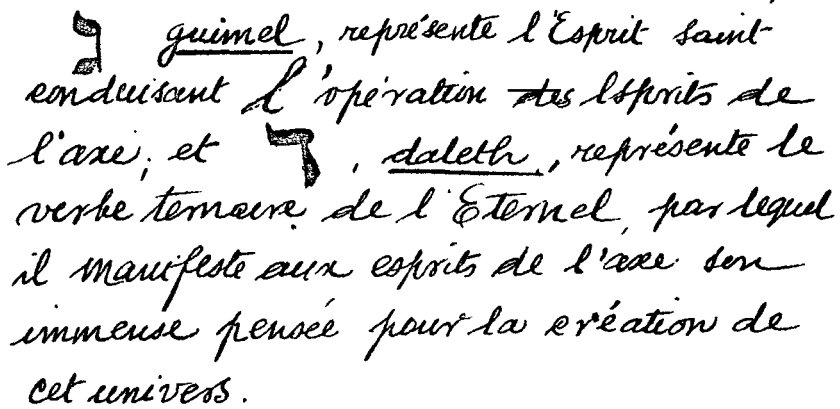 ג guimel, représente l'Esprit saint
conduisant l'opération des Esprits de
l'axe, et ד, daleth, représente le
verbe ternaire de l'Eternel, par lequel
il manifeste aux esprits de l'axe son
immense pensée pour la création de
cet univers.